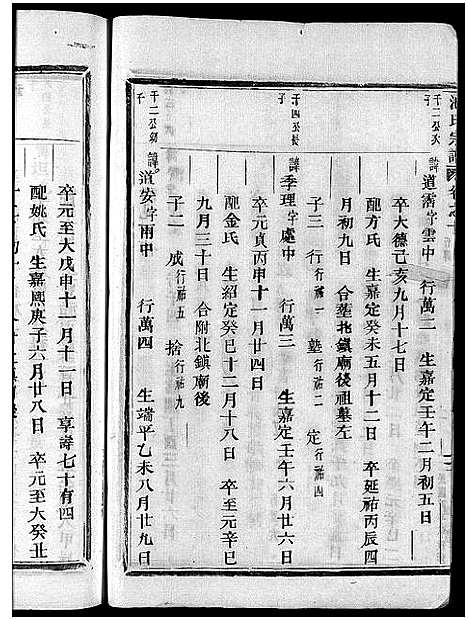 池氏宗譜 卷之二
千二公次子
諱道濟字雲中 行萬二 生嘉定壬午二月初五日
卒大德己亥九月十七日
配方氏 生嘉定癸未五月十二日 卒延祐丙辰四
月初九日 合塟北鎮廟後祖墓左
子三 行祐一 塾行祐二 定行祐四
千四公長子
諱季理字處中 行萬三 生嘉定壬午六月廿六日
卒元貞丙申十一月廿四日
配金氏 生紹定癸巳十二月十八日 卒至元辛巳
九月三十日 合附北鎮廟後
子二 成行祐五 捨行祐九
千二公幼子
諱道安字雨中 行萬四 生端平乙未八月廿九日
卒元至大戊申十一月十一日 享壽七十有四
配姚氏 生嘉熙庚子六月廿八日 卒元至大癸丑